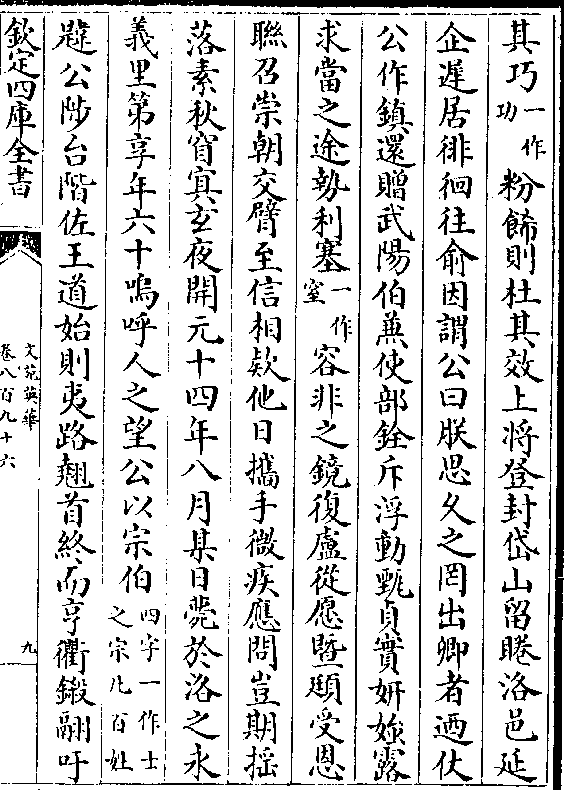 其巧一作功粉飾則杜其效上將登封岱山留睠洛邑延
企遲居徘徊往俞因謂公曰朕思乆之罔出卿者迺仗
公作鎮還贈武陽伯兼使部銓斥浮動甄貞實妍媸露
求當之途勢利塞一作窒容非之鏡復盧從愿暨頲受恩
聯召崇朝交臂至信相欵他日攜手微疾應問豈期揺
落素秋窅㝠玄夜開元十四年八月某日薨於洛之永
義里第享年六十嗚呼人之望公以宗伯四字一作士之宗凡百姓
韙公陟台階佐王道始則夷路翹首終而亨衢鎩翮吁
欽定四庫全書
文苑英華
卷八百九十六
九